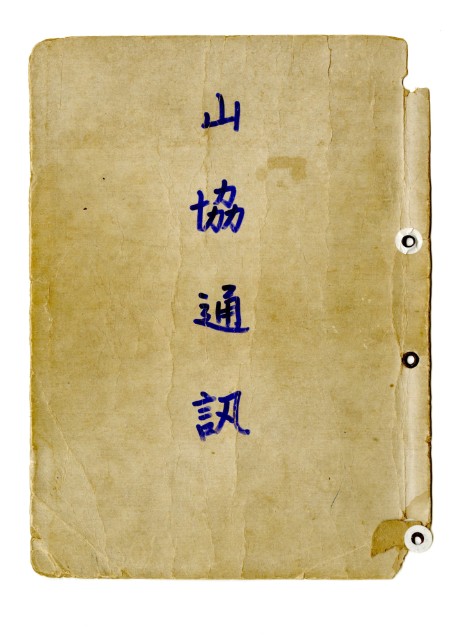 山協通訊